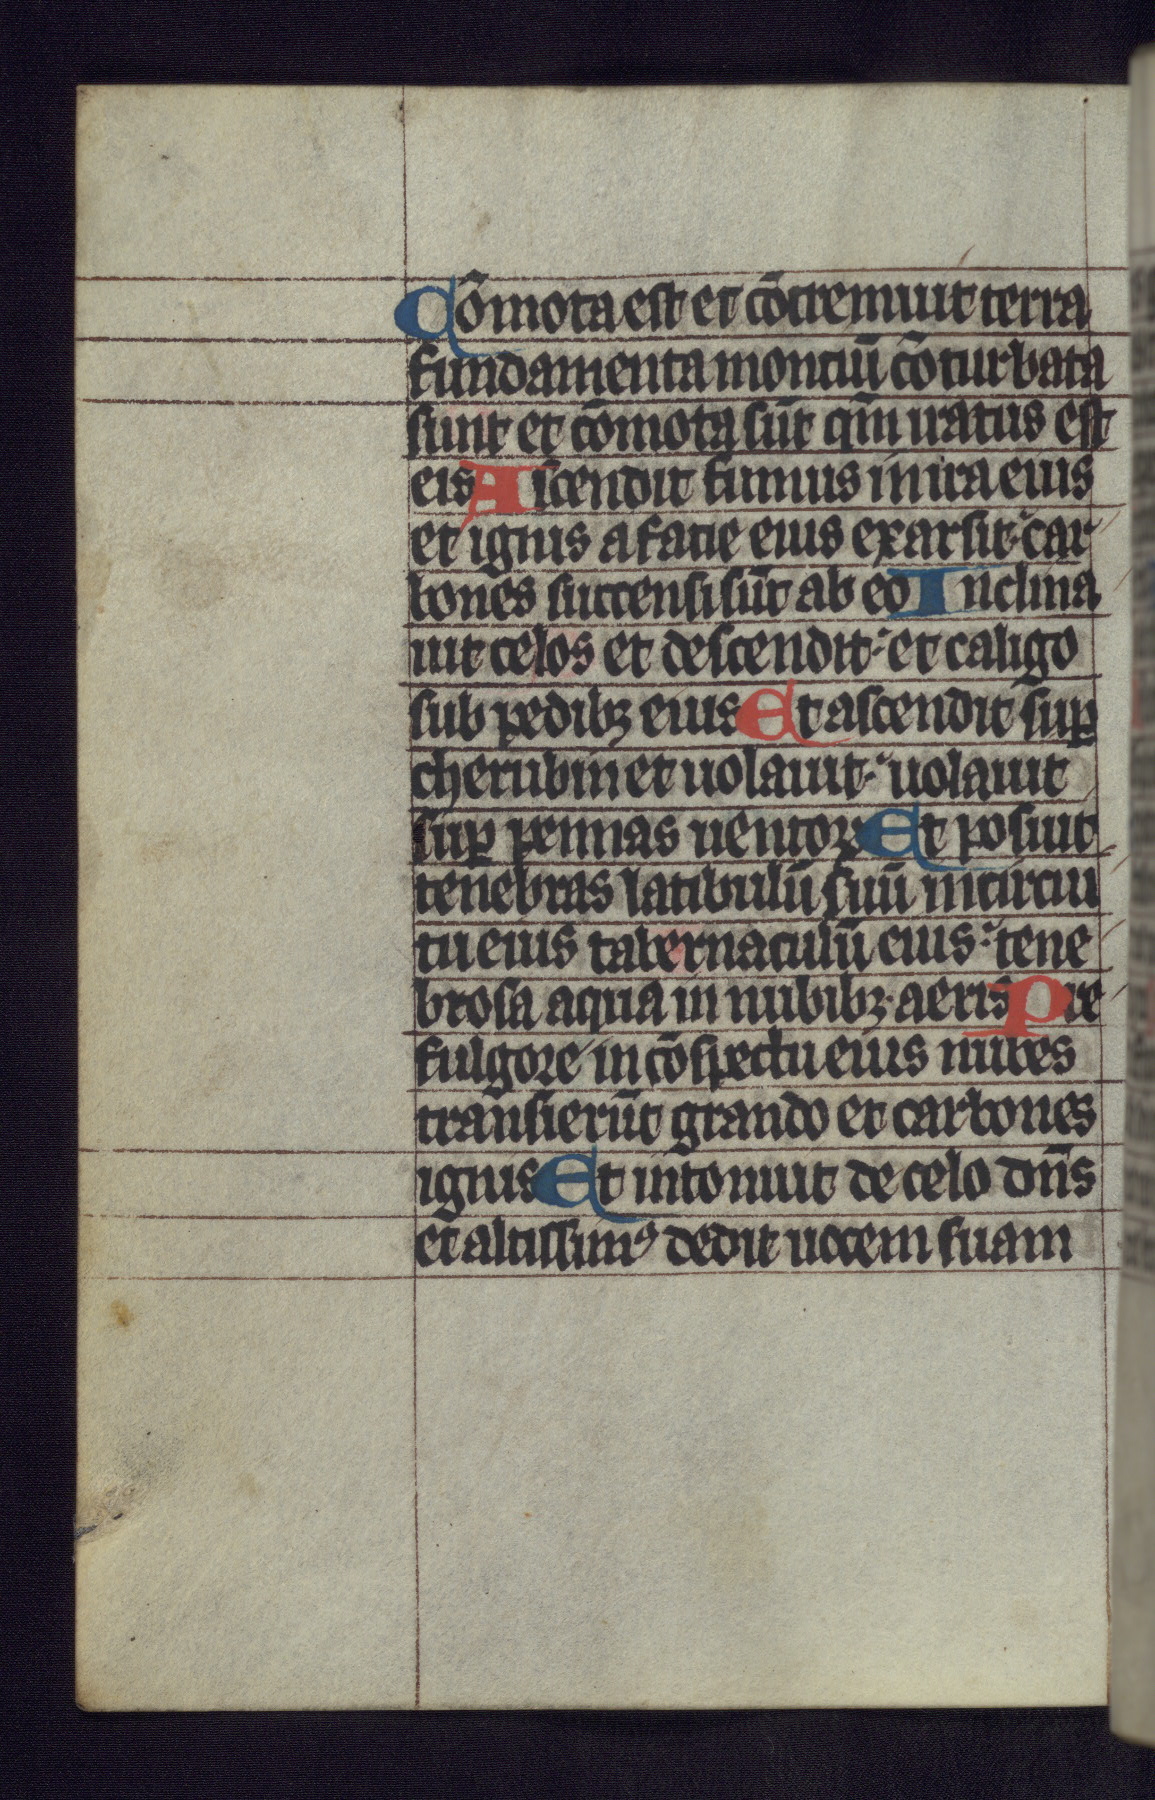 Cōmota est et cōtremuit terra
fundamenta montiū cōturbata
sunt et cōmota sūt qm̄ iratus est
eis Ascendit fumus in ira eius
et ignis a facie eius exarsit: car
bones succensi sūt ab eo Inclina
uit celos et descendit: et caligo
sub pedibꝫ eius Et ascendit suꝑ
cherubin et uolauit: uolauit
suꝑ pennas uentoꝝ Et posuit
tenebras latibulū suū in circui
tu eius tabernaculū eius: tene
brosa aqua in nubibꝫ aeris Pre
fulgore in cōspectu eius nubes
transierūt grando et carbones
ignis Et intonuit de celo dn̄s
et altissimꝰ dedit uocem suam